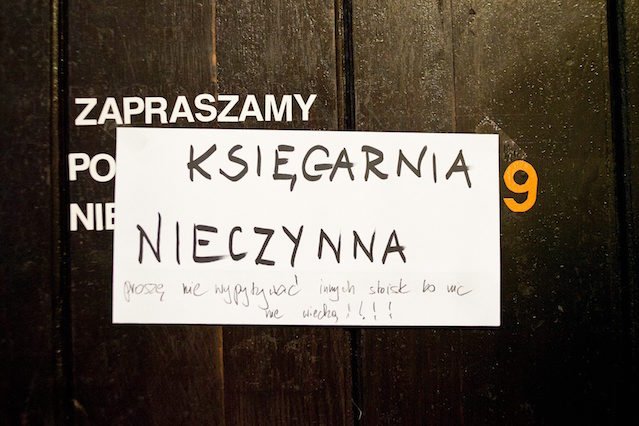 ZAPRASZAMY
PO
NIE
9
KSIĘGARNIA
NIECZYNNA
proszę nie wypytywać innych stoisk bo nic
nie wiedzą !!!!